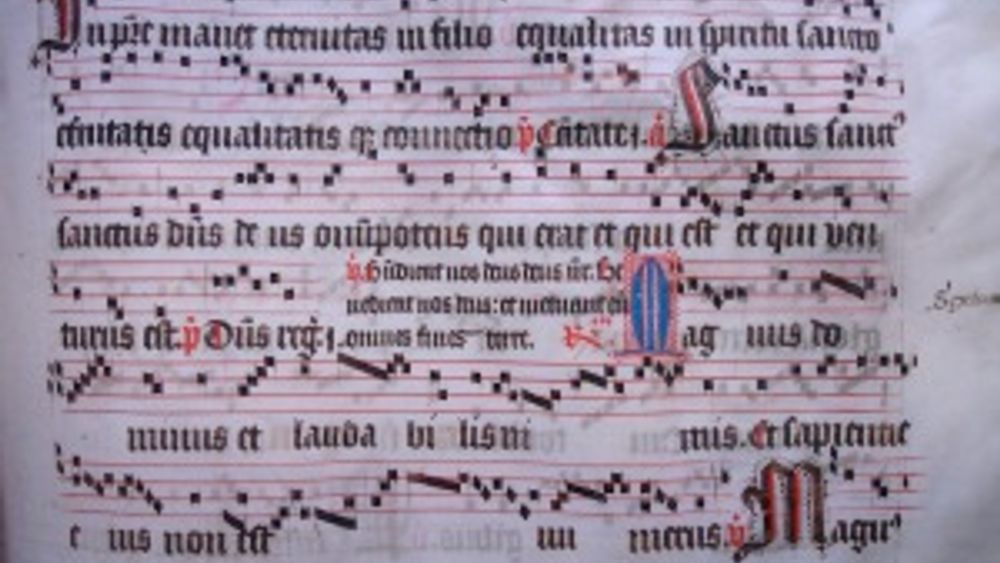 In pr̄e manet eternitas in filio equalitas in spiritu sancto
et̄nitatis equalitatis q3 connectio p̄ Cātate ꝫ. a Sanctus sanct⁹
sanctus dn̄s de us om̄ipotens qui erat et qui est et qui ven
turus est. p̄ Dn̄s reg̃.
v Bn̄dicat nos deus deus nr̄. Be
nedicat nos deus: et metuant eū
omnes fines terre.
Mag nus do
minus et lauda bi lis ni mis. et sapientie
e ius non est nu merus. v Magn⁹